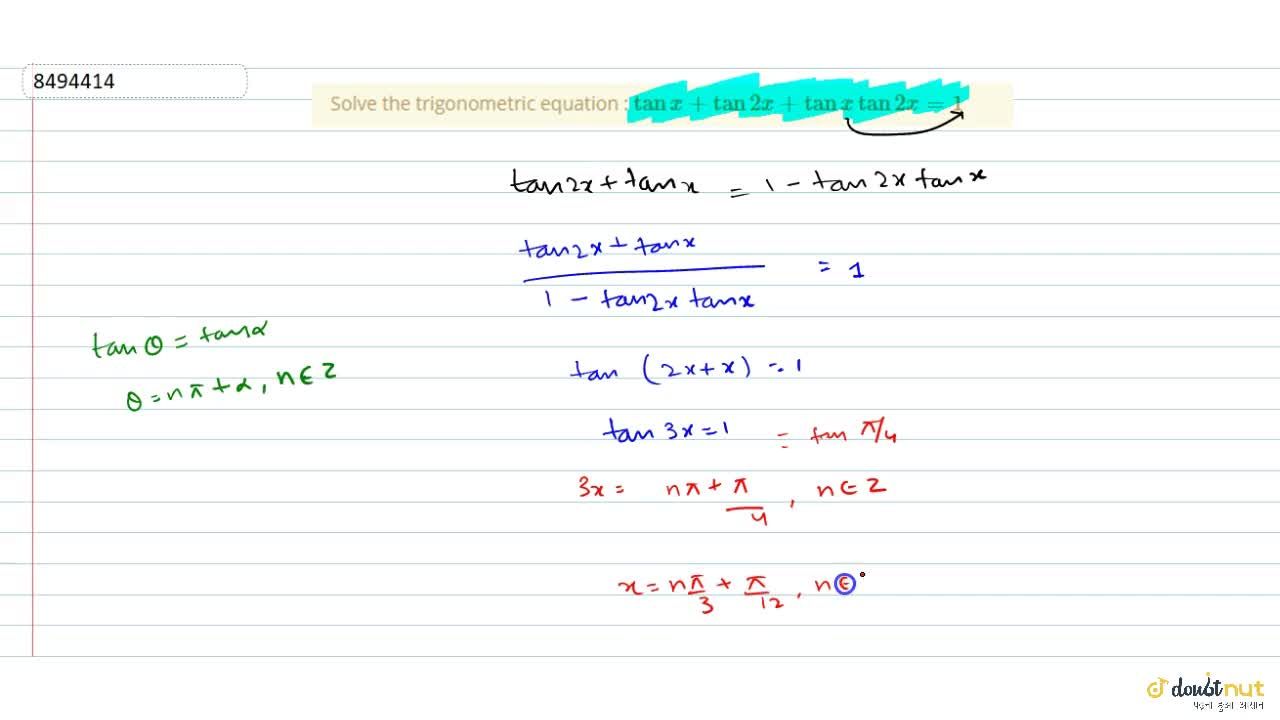 8494414
Solve the trigonometric equation : tan x + tan 2x + tan x tan 2x = 1
tan2x + tan x = 1 - tan 2x tan x
tan2x + tan x
= 1
1 - tan2x tan x
tan θ = tan α
θ = nπ + α, n ∈ Z
tan (2x + x) = 1
tan 3x = 1 = tan π/4
3x = nπ + π/4, n ∈ Z
x = nπ/3 + π/12, n ∈
doubtnut
पढ़ना हुआ आसान